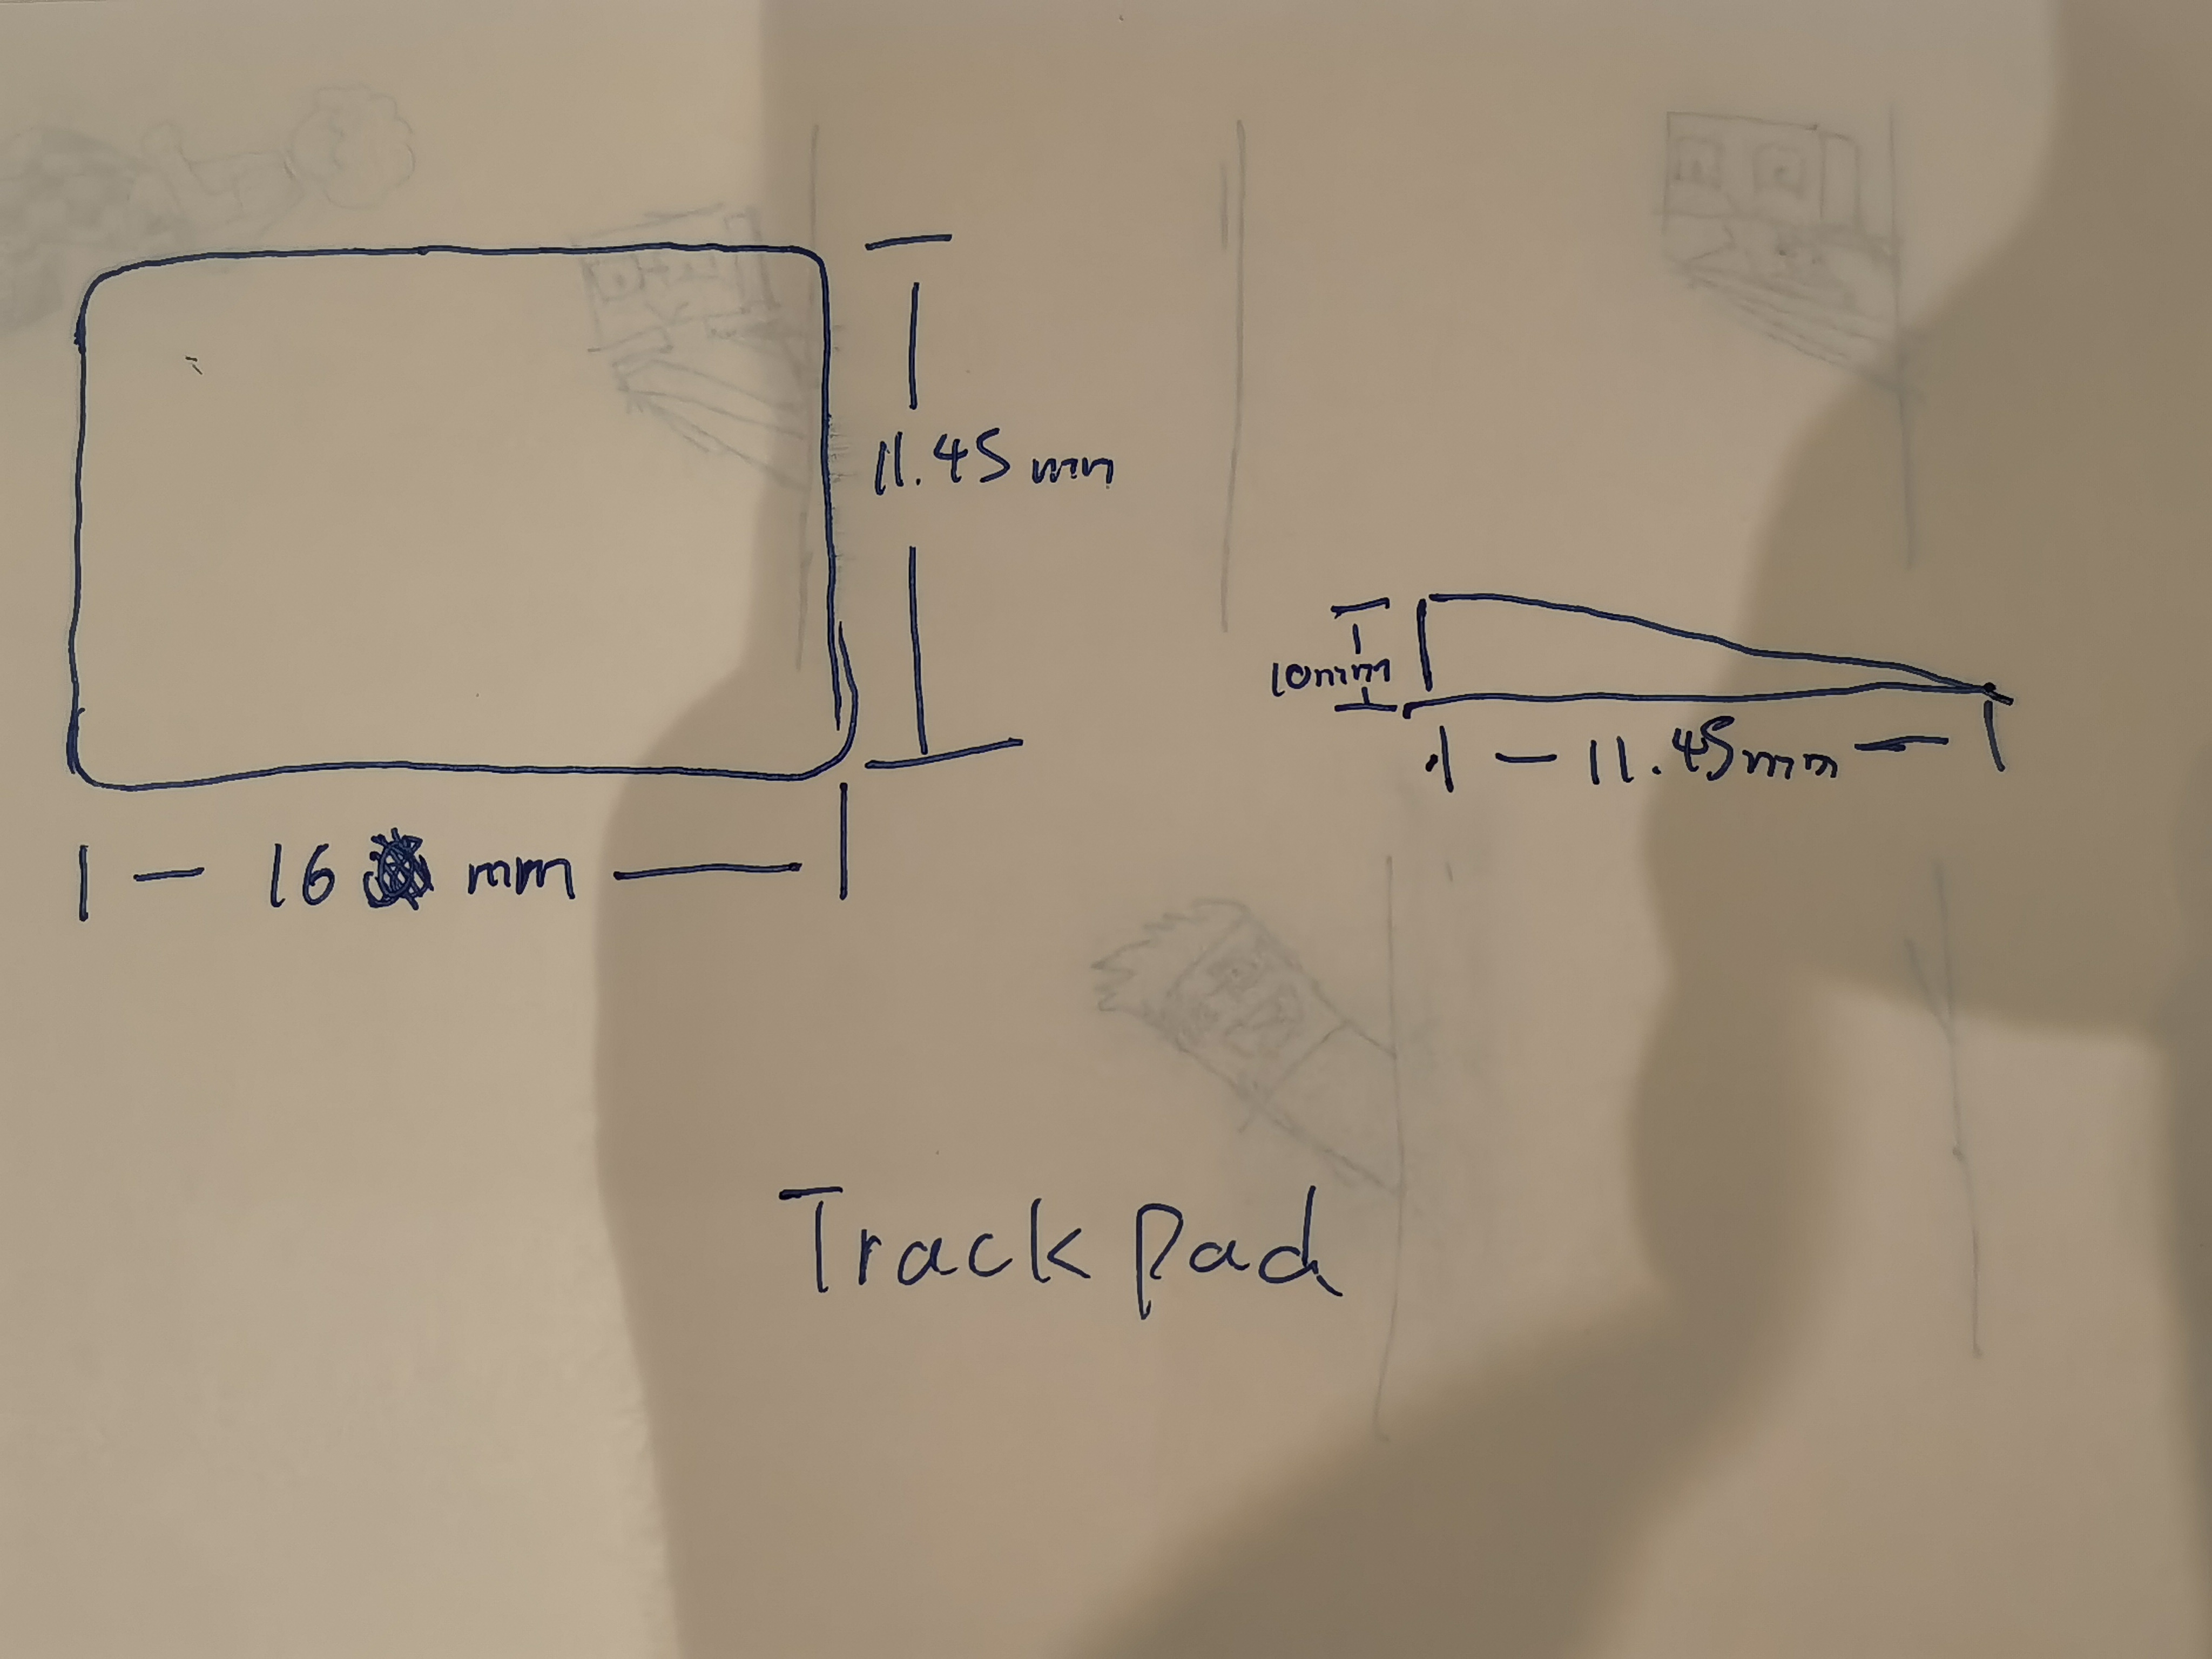 11.45 mm
16 mm
10mm
11.45mm
Track pad